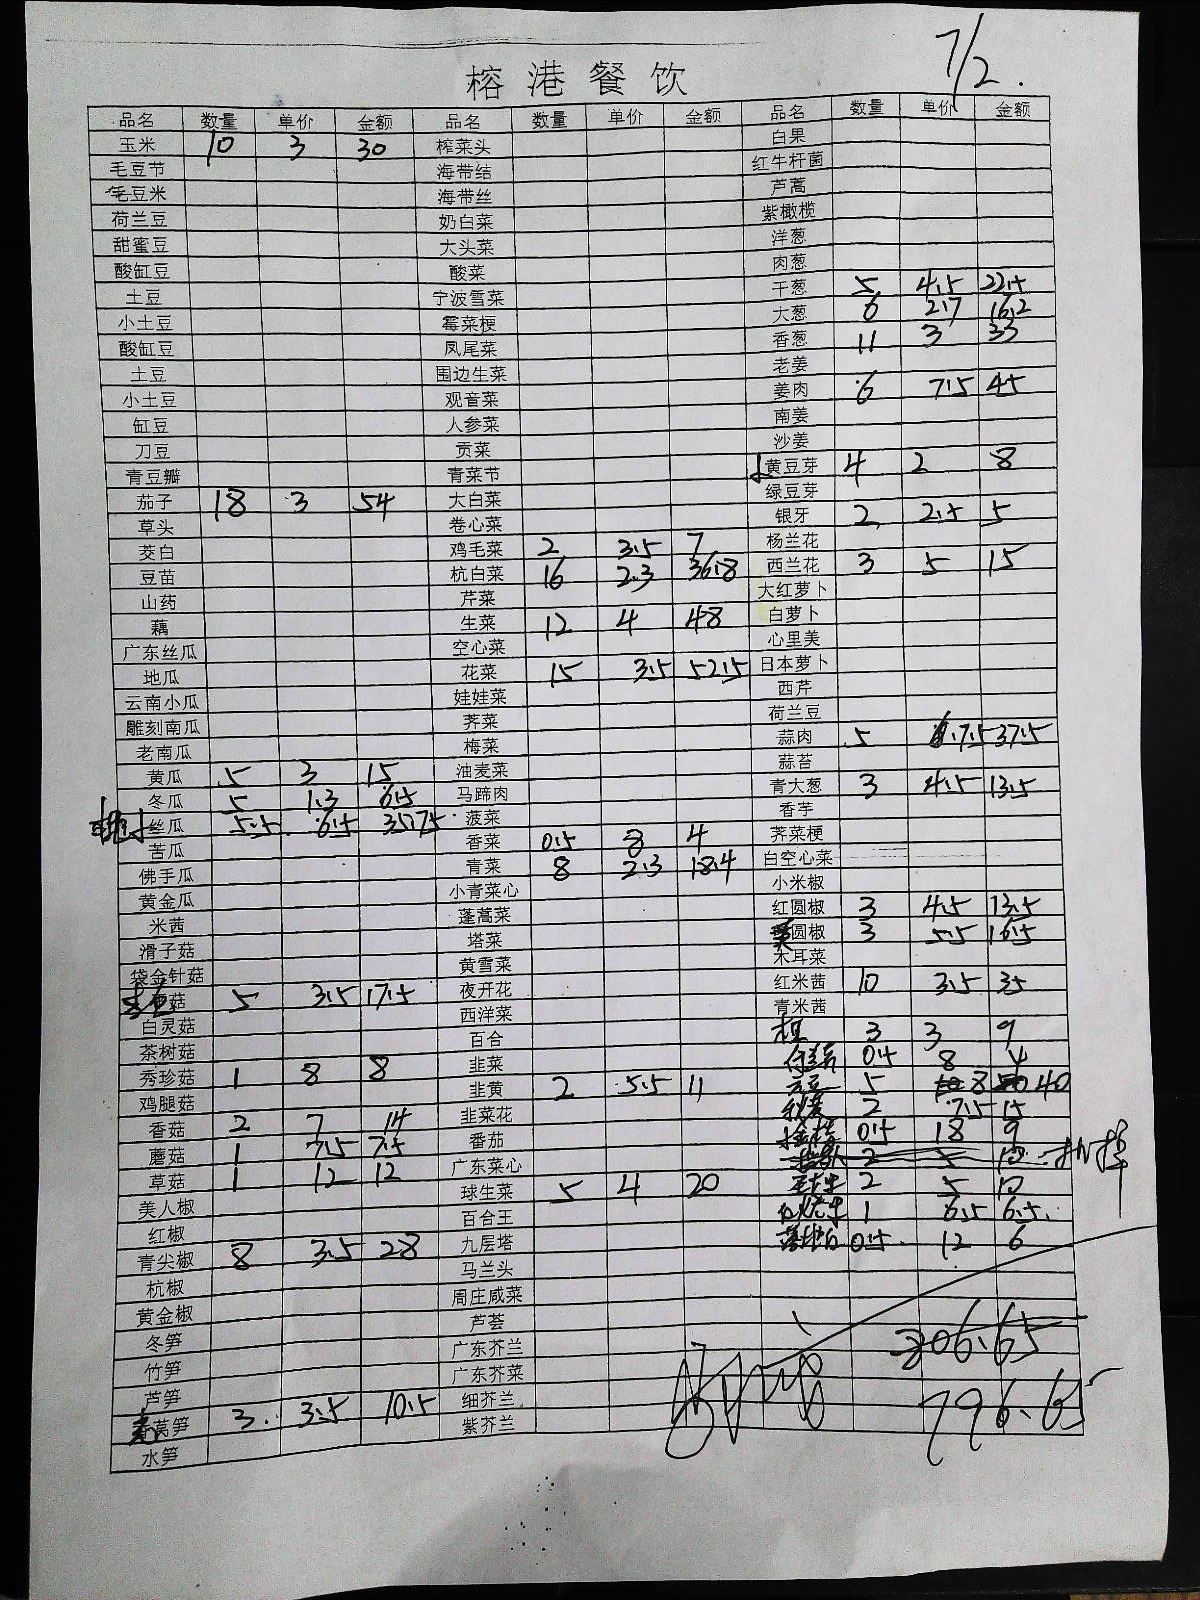 7/2.
榕港餐饮
品名 数量 单价 金额 品名 数量 单价 金额 品名 数量 单价 金额
玉米 10 3 30 榨菜头 白果
毛豆节 海带结 红牛杆菌
毛豆米 海带丝 芦蒿
荷兰豆 奶白菜 紫橄榄
甜蜜豆 大头菜 洋葱
酸缸豆 酸菜 肉葱
土豆 宁波雪菜 干葱 5 4.5 22.5
小土豆 霉菜梗 大葱 6 2.7 16.2
酸缸豆 凤尾菜 香葱 11 3 33
土豆 围边生菜 老姜
小土豆 观音菜 姜肉 6 7.5 45
缸豆 人参菜 南姜
刀豆 贡菜 沙姜
青豆瓣 青菜节 黄豆芽 4 2 8
茄子 18 3 54 大白菜 绿豆芽
草头 卷心菜 银牙 2 2.5 5
茭白 鸡毛菜 2 3.5 7 杨兰花
豆苗 杭白菜 16 2.3 36.8 西兰花 3 5 15
山药 芹菜 大红萝卜
藕 生菜 12 4 48 白萝卜
广东丝瓜 空心菜 心里美
地瓜 花菜 15 3.5 52.5 日本萝卜
云南小瓜 娃娃菜 西芹
雕刻南瓜 荠菜 荷兰豆
老南瓜 梅菜 蒜肉 5 7.5 37.5
黄瓜 5 3 15 油麦菜 蒜苔
冬瓜 5 1.3 6.5 马蹄肉 青大葱 3 4.5 13.5
丝瓜 5.5 6.5 35.75 菠菜 香芋
苦瓜 香菜 0.5 8 4 荠菜梗
佛手瓜 青菜 8 2.3 18.4 白空心菜
黄金瓜 小青菜心 小米椒
米茜 蓬蒿菜 红圆椒 3 4.5 13.5
滑子菇 塔菜 圆椒 3 5.5 16.5
袋金针菇 黄雪菜 木耳菜
菇 5 3.5 17.5 夜开花 红米茜 10 3.5 35
白灵菇 西洋菜 青米茜
茶树菇 百合 3 3 9
秀珍菇 1 8 8 韭菜 0.5 8 4
鸡腿菇 韭黄 2 5.5 11 5 8 40
香菇 2 7 14 韭菜花 2 7.5 15
蘑菇 1 7.5 7.5 番茄 0.5 18 9
草菇 1 12 12 广东菜心 2 5 10
美人椒 球生菜 5 4 20 2 5 10
红椒 百合王 1 6.5 6.5
青尖椒 8 3.5 28 九层塔 0.5 12 6
杭椒 马兰头
黄金椒 周庄咸菜
冬笋 芦荟
竹笋 广东芥兰 806.65
芦笋 广东芥菜
莴笋 3 3.5 10.5 细芥兰 796.65
水笋 紫芥兰